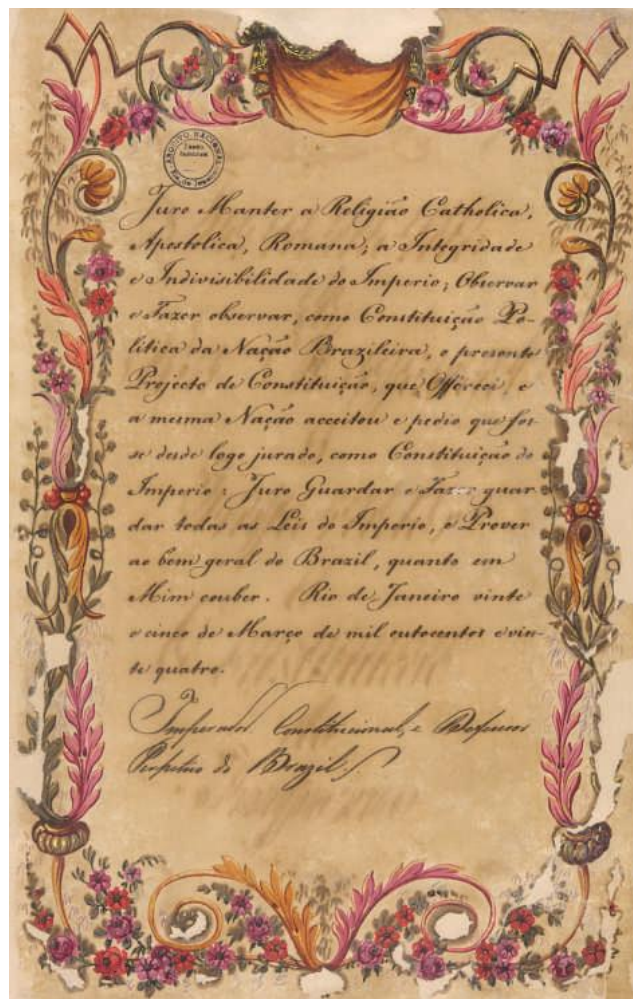 ARQUIVO NACIONAL
Rio de Janeiro
Juro Manter a Religião Catholica,
Apostolica, Romana; a Integridade
e Indivisibilidade do Imperio; Observar
e Fazer observar, como Constituição Po-
litica da Nação Brazileira, o presente
Projecto de Constituição, que Offereci, e
a mesma Nação acceitou e pedio que fos-
se desde logo jurado, como Constituição do
Imperio: Juro Guardar e Fazer guar
dar todas as Leis do Imperio, e Prover
ao bem geral do Brazil, quanto em
Mim couber. Rio de Janeiro vinte
e cinco de Março de mil outocentos e vin-
te quatro.
Imperador Constitucional, e Defensor
Perpetuo do Brazil